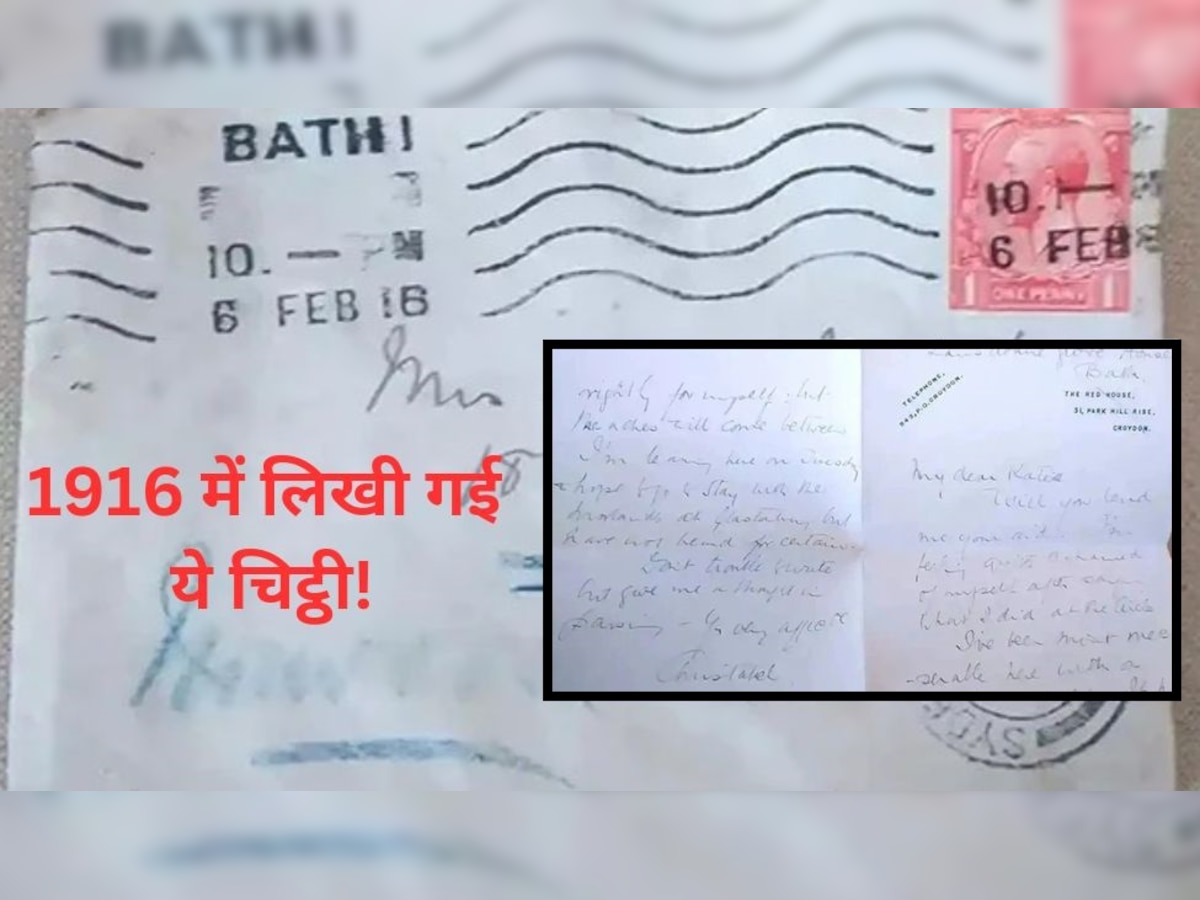 BATH!
BATH!
10. —
6 FEB 16
10.
6 FEB
1 ONE PENNY 1
1916 में लिखी गई
ये चिट्ठी!
rightly for myself: but
will come between
I'm leaving here on Tuesday
hope to go & stay with the
at Glastonbury but
have not heard for certain.
Don't trouble to write
but give me a thought in
passing – Yr very
Christabel.
Bath.
TELEPHONE,
P.O. CROYDON.
THE RED HOUSE,
31, PARK HILL RISE,
CROYDON.
My dear Katie
Will you lend
me your aid. I'm
feeling quite ashamed
of myself after
what I did at the
I've been most mise
-rable here with a
SYD